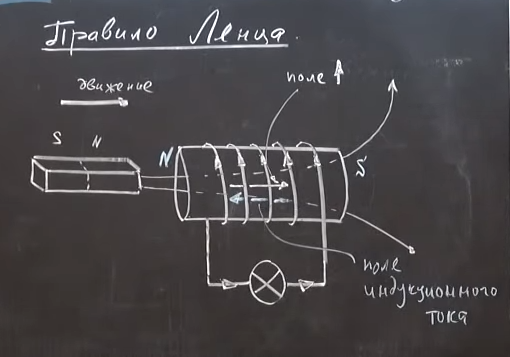 Правило Ленца.
движение
поле ↑
S N
N
S
поле
индукционного
тока